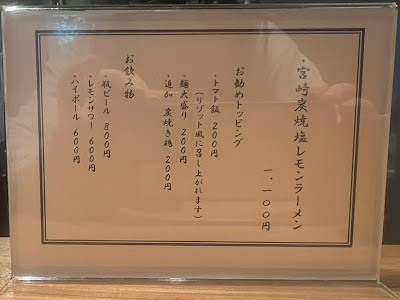 ・宮崎炭焼塩レモンラーメン
一、一〇〇円
お勧めトッピング
・トマト飯 200円
（リゾット風に召し上がれます）
・麺大盛り 200円
・追加 炭焼き鶏 200円
お飲み物
・瓶ビール 800円
・レモンサワー 600円
・ハイボール 600円